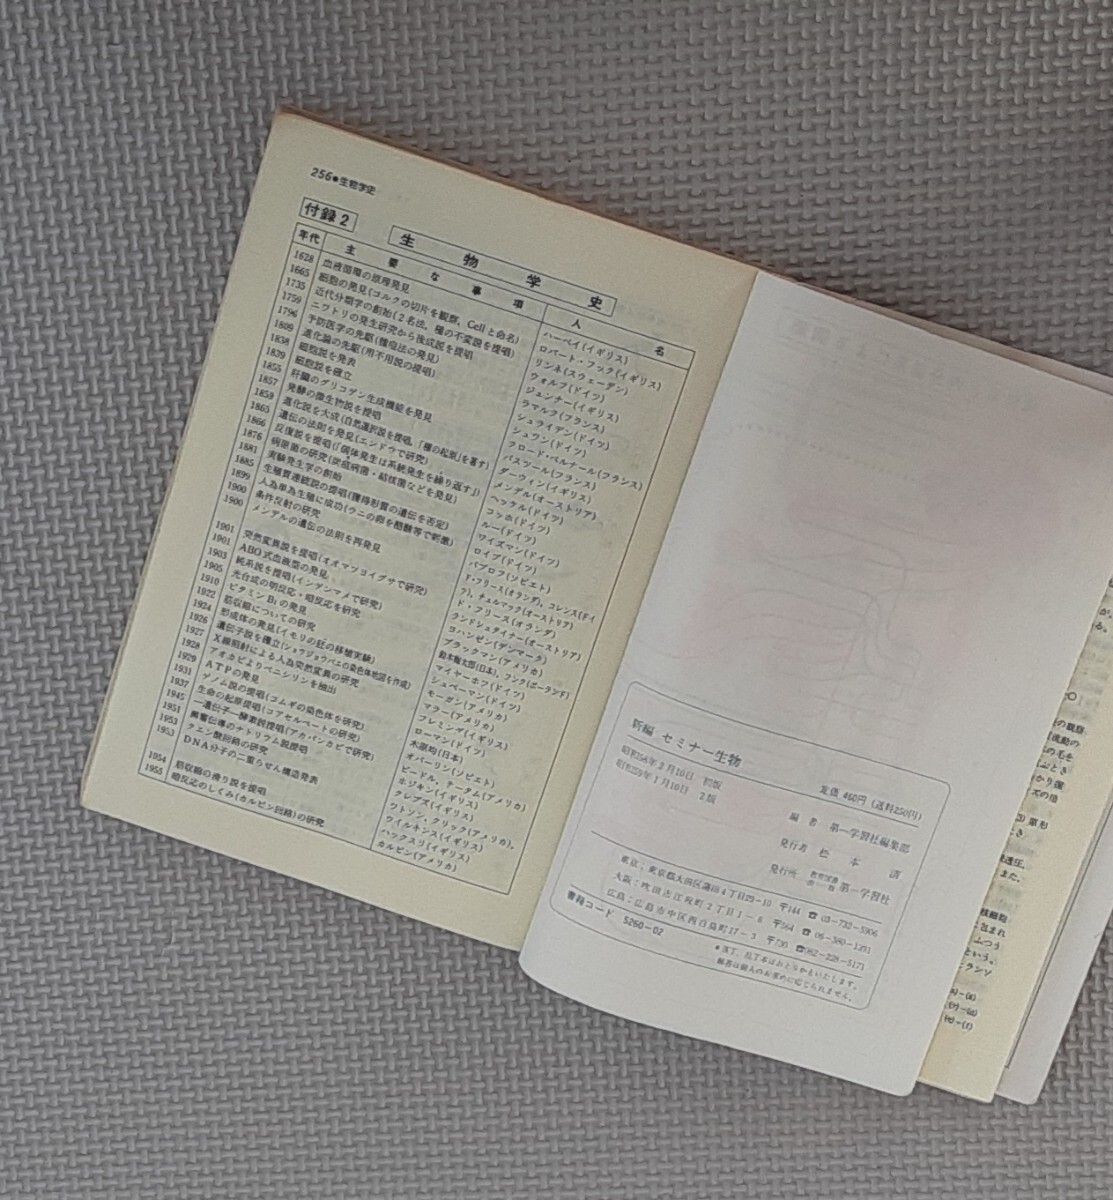 256●生物学史
付録2
生物学史
年代 主要な事項 人名
1628 血液循環の原理発見 ハーベイ(イギリス)
1665 細胞の発見(コルクの切片を観察, Cellと命名) ロバート・フック(イギリス)
1735 近代分類学の創始(2名法, 種の不変説を提唱) リンネ(スウェーデン)
1759 ニワトリの発生研究から後成説を提唱 ウォルフ(ドイツ)
1796 予防医学の先駆(種痘法の発見) ジェンナー(イギリス)
1809 進化論の先駆(用不用説の提唱) ラマルク(フランス)
1838 細胞説を発表 シュライデン(ドイツ)
1839 細胞説を確立 シュワン(ドイツ)
1855 肝臓のグリコゲン生成機能を発見 クロード・ベルナール(フランス)
1857 発酵の微生物説を提唱 パスツール(フランス)
1859 進化説を大成(自然選択説を提唱, 「種の起原」を著す) ダーウィン(イギリス)
1865 遺伝の法則を発見(エンドウで研究) メンデル(オーストリア)
1866 反復説を提唱(「個体発生は系統発生を繰り返す」) ヘッケル(ドイツ)
1876 病原菌の研究(炭疽病菌・結核菌などを発見) コッホ(ドイツ)
1881 実験発生学の創始 ルー(ドイツ)
1885 生殖質連続説の提唱(獲得形質の遺伝を否定) ワイズマン(ドイツ)
1899 人為単為生殖に成功(ウニの卵を酪酸等で刺激) ロイブ(ドイツ)
1900 条件反射の研究 パブロフ(ソビエト)
1900 メンデルの遺伝の法則を再発見 ド・フリース(オランダ), コレンス(ドイツ), チェルマック(オーストリア)
1901 突然変異説を提唱(オオマツヨイグサで研究) ド・フリース(オランダ)
1901 ABO式血液型の発見 ランドシュタイナー(オーストリア)
1903 純系説を提唱(インゲンマメで研究) ヨハンゼン(デンマーク)
1905 光合成の明反応・暗反応を研究 ブラックマン(アメリカ)
1910 ビタミンB₁の発見 鈴木梅太郎(日本), フンク(ポーランド)
1922 筋収縮についての研究 マイヤーホフ(ドイツ)
1924 形成体の発見(イモリの胚の移植実験) シュペーマン(ドイツ)
1926 遺伝子説を確立(ショウジョウバエの染色体地図を作成) モーガン(アメリカ)
1927 X線照射による人為突然変異の研究 マラー(アメリカ)
1928 アオカビよりペニシリンを抽出 フレミング(イギリス)
1929 ATPの発見 ローマン(ドイツ)
1931 ゲノム説の提唱(コムギの染色体を研究) 木原均(日本)
1937 生命の起原提唱(コアセルベートの研究) オパーリン(ソビエト)
1945 一遺伝子一酵素説提唱(アカパンカビで研究) ビードル, テータム(アメリカ)
1951 興奮伝導のナトリウム説提唱 ホジキン(イギリス)
1953 クエン酸回路の研究 クレブス(イギリス)
1953 DNA分子の二重らせん構造発表 ワトソン, クリック(アメリカ), ウイルキンス(イギリス)
1954 筋収縮の滑り説を提唱 ハックスリ(イギリス)
1955 暗反応のしくみ(カルビン回路)の研究 カルビン(アメリカ)
新編 セミナー生物
昭和56年2月10日 初版
昭和59年1月10日 2版
定価 460円 (送料250円)
編者 第一学習社編集部
発行者 松本 清
発行所 第一学習社
東京:東京都大田区蒲田4丁目29-10 〒144 ☎03-732-5906
大阪:吹田市江坂町2丁目1-6 〒564 ☎06-380-1391
広島:広島市中区西白島町17-3 〒730 ☎082-228-5171
書籍コード 5260-02
●落丁, 乱丁本はおとりかえいたします。
解答は個人のお求めに応じられません。